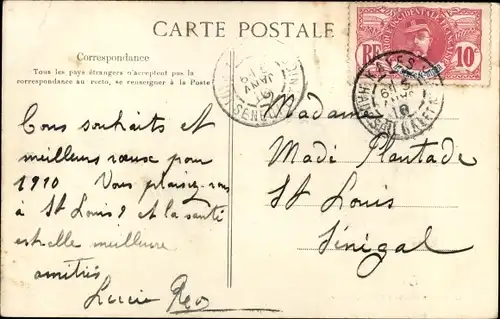 CARTE POSTALE
Correspondance
Tous les pays étrangers n'acceptent pas la
correspondance au recto, se renseigner à la Poste
RF
10
KAYES
JANV
10
SENEGAL
Madame
Madé Plantade
St Louis
Sénégal
Tous souhaits et
meilleurs vœux pour
1910 Vous plaisez-vous
à St Louis ? et la santé
est-elle meilleure
amitiés
Lucie